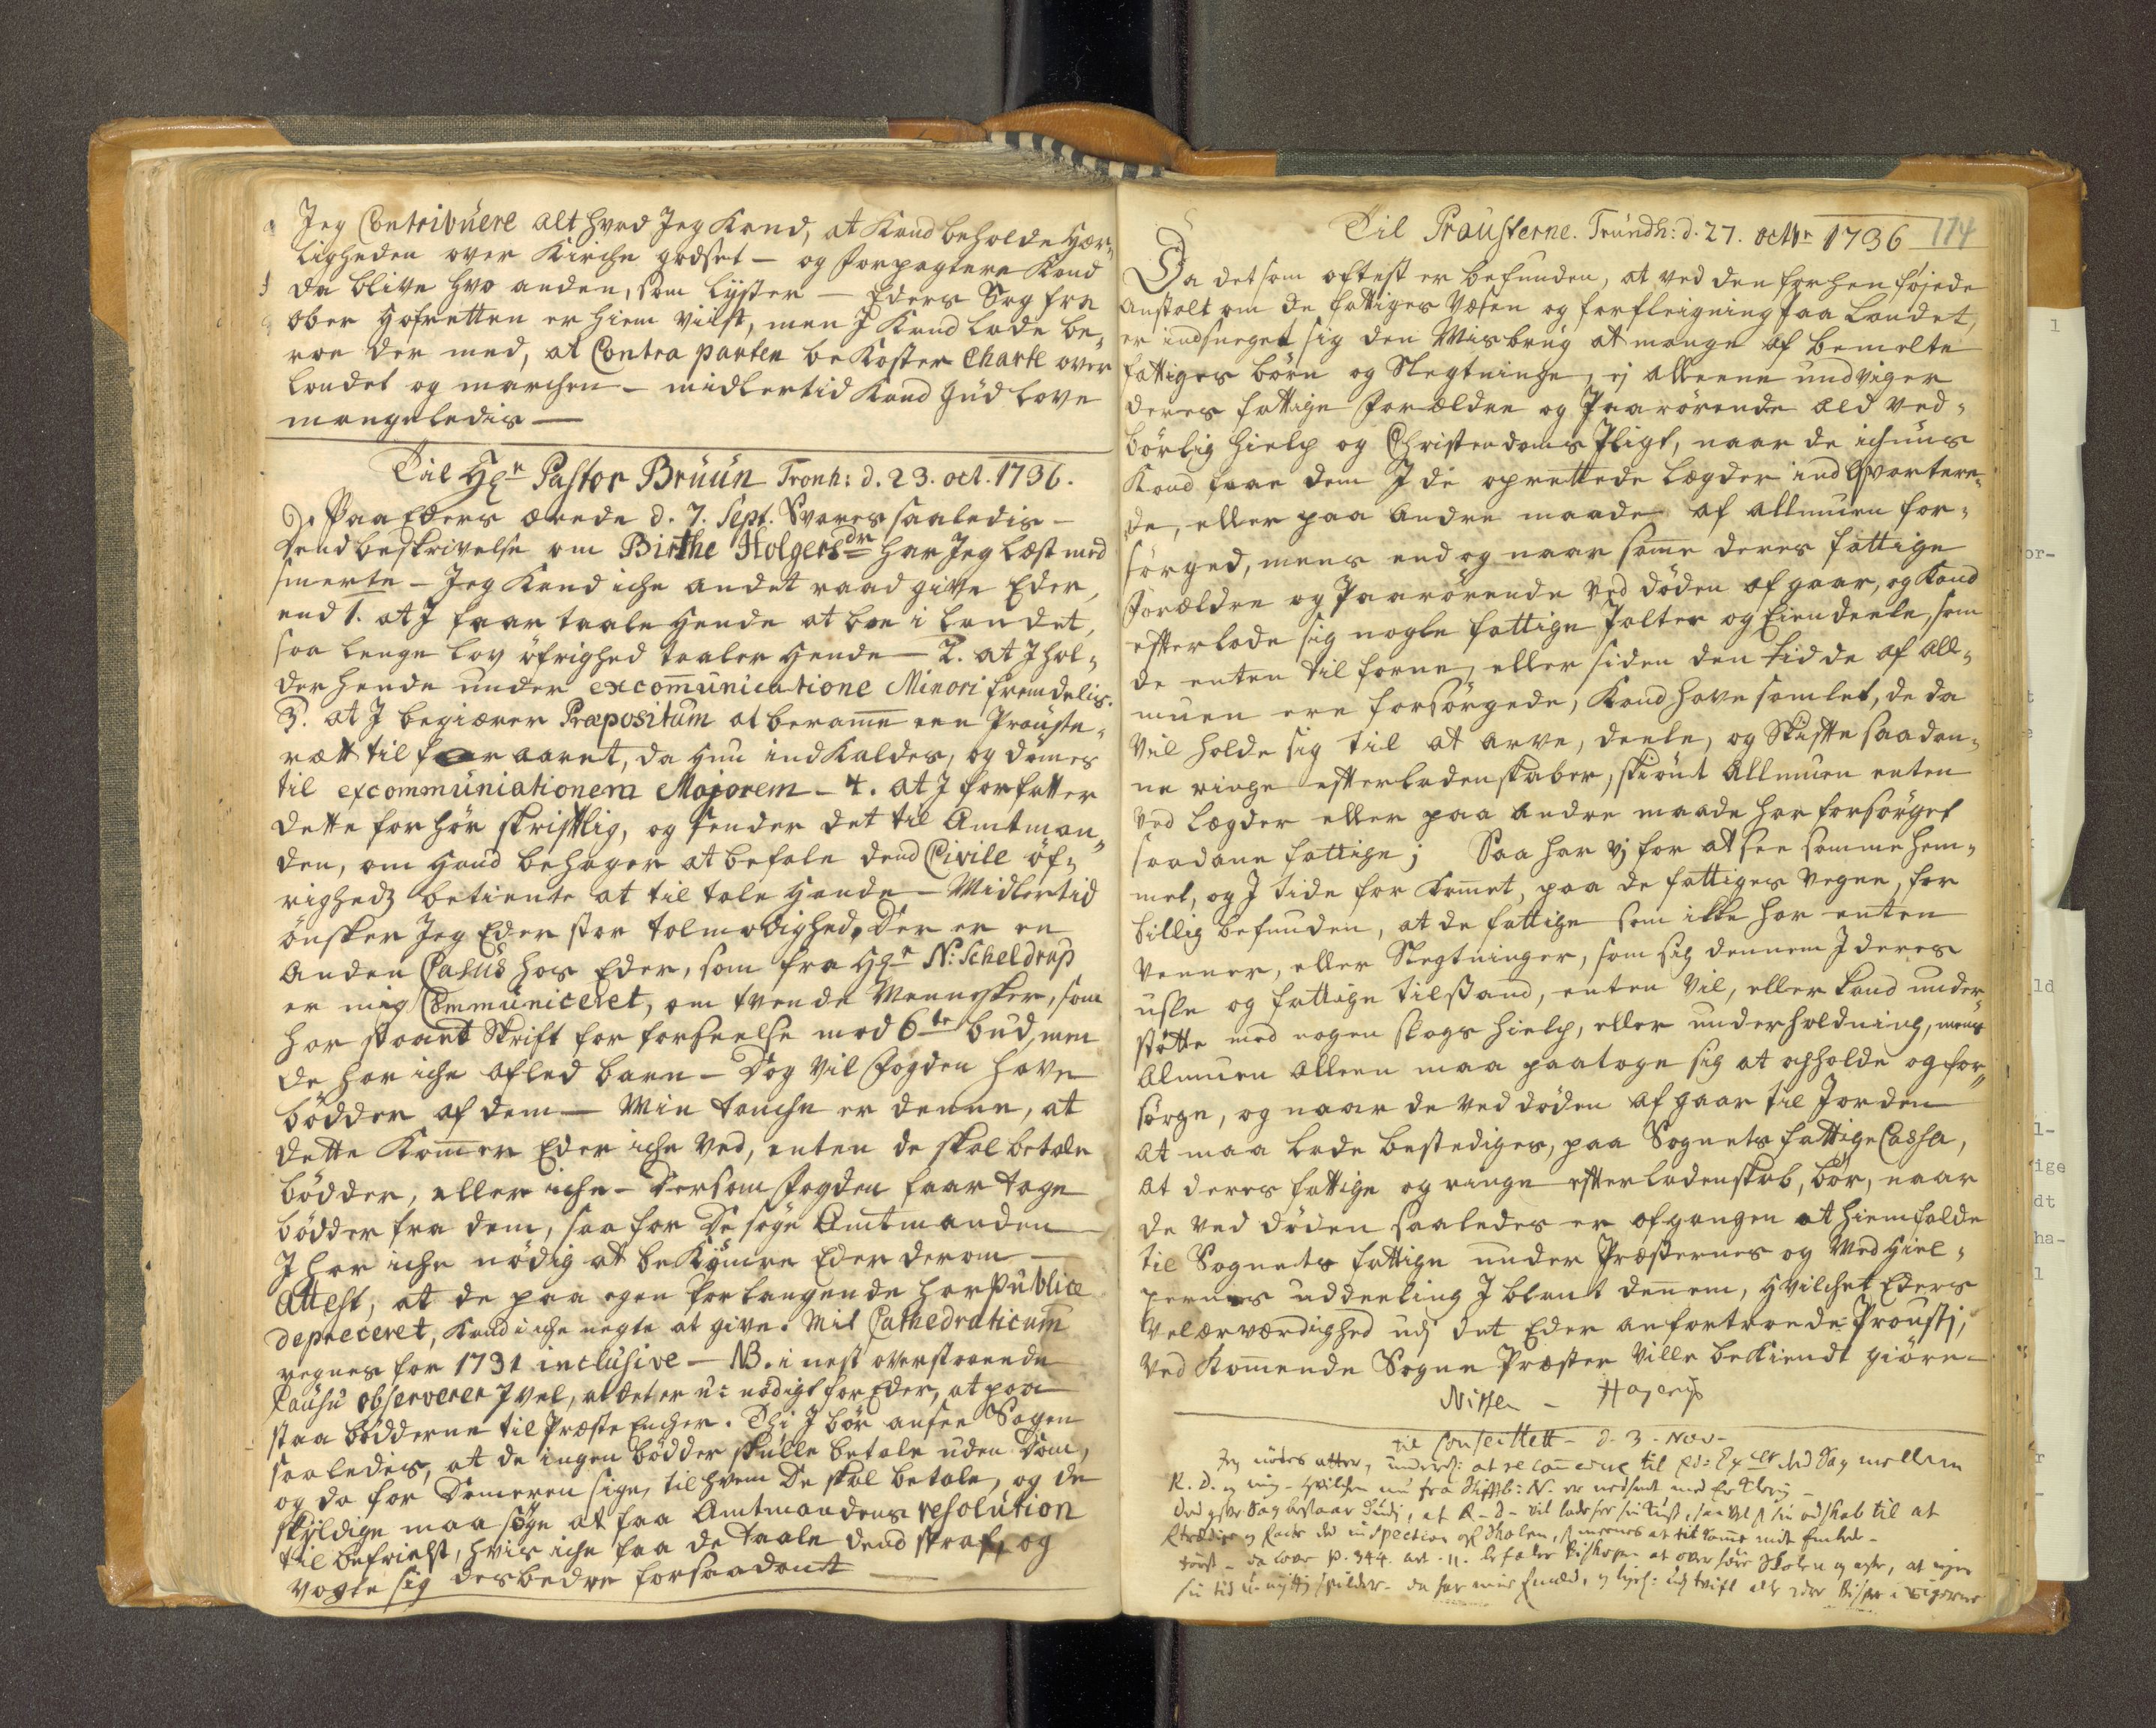 Jeg Contribuere alt hvad Jeg Kand, at Kand beholde Her„
ligheden over Kirche godset - og forpagtere Kand
da blive hvo anden, som lyster - Eders Sag fra
Ober Hofretten er hiem viist, men I Kand lade be„
roe der med, at Contra parten beKoster Charte over
landet og marchen - midlertid Kand Gud lave
mangeledis -
Til Hr Pastor Brüün Tronh: d. 23. oct. 1736.
Paa Eders ærede d. 7. Sept. Svares saaledis -
Dend beskrivelse om Birthe Holgersdr har Jeg læst med
smerte - Jeg Kand iche andet raad give Eder,
end 1. at I faar taale Hende at boe i landet,
saa lenge lov öfrighed taaler Hende - 2. at I hol„
der hende under excomunicatione Minori fremdelis.
3. at I begiærer Præpositum at beramme een Prouste„
rætt til foraaret, da Hun indKaldes, og dömes
til excommuniationem Majorem - 4. at I forfatter
dette forhör skriftlig, og sender det til Amtman„
den, om Hand behager at befale dend Civile öf„
righeds betiente at til tale Hende - Midlertid
önsker Jeg Eder stor tolmodighed. Der er en
anden Casus hos Eder, som fra Hr N: Scheldrup
er mig Communiceret, om tvende Mennesker, som
har staaet Skrift for forseelse mod 6te bud, men
de har iche afled barn - Dog vil Fogden have
bödder af dem - Min tanche er denne, at
dette Kommer Eder iche ved, enten de skal betale
bödder, eller iche - Dersom Fogden faar tage
bödder fra dem, saa for De söge Amtmanden
I har iche nödig at beKymre Eder derom -
Attest, at de paa egen forlangende har publice
depreceret, Kand iche negte at give. Mit Cathedraticum
regnes for 1731 inclusive - NB. i nest overstaaende
Causu observerer I vel, at det er u: nödigt for Eder, at paa
staa bödderne til Præste Encher. Thi I bör ansee Sagen
saaledes, at de ingen bödder skulle betale uden Dom,
og da for Domeren sige, til hvem De skal betale, og de
skyldige maa söge at faa Amtmandens resolution
til befrielse, hvis iche faa de taale dend straf, og
vogte sig desbedre forsaadant
Til Prousterne. Trundh: d. 27. octbr 1736 174
Da det som oftest er befunden, at ved den forhen föjede
anstalt om de fattiges Væsen og forfleigning paa Landet,
er indsneget sig den Misbrug at mange af bemelte
fattiges börn og Slegtninge, ej alleene undviger
deres fattige Forældre og Paarörende ald ved„
börlig hielp og Christendoms Pligt, naar de ichuns
Kand faae dem I de oprettede Lægder indQvartere„
de, eller paa andre maade af allmuen for„
sörged, mens end og naar samme deres fattige
Forældre og Paarörende ved döden afgaar, og Kand
efterlade sig nogle fattige Palter og Eiendeele, som
de enten til forne, eller siden den tid de af all„
muen ere forsörgede, Kand have samlet, de da
vil holde sig til at arve, deele, og Skifte saadan„
ne ringe efterladenskaber, skiönt Allmuen enten
ved Lægder eller paa andre maade har forsörget
saadane fattige; Saa har vj for at see samme hem„
met, og I tide for Kommet, paa de fattiges vegne, for
billig befunden, at de fattige som ikke har enten
venner, eller Slegtninger, som sig dennem I deres
usle og fattige tilstand, enten vil, eller Kand under„
stötte med nogen slags hielp, eller underholdning, mens
Almuen alleen maa paatage sig at opholde og for„
sörge, og naar de ved döden afgaar til Jorden
at maa lade bestediges, paa Sognets fattige Cassa,
at deres fattige og ringe efterladenskab, bör, naar
de ved döden saaledes er afgangen at hiemfalde
til Sognets fattige under Præsternes og Medhiel„
pernes uddeeling I blant dennem, Hvilchet Eders
Velærværdighed udj det Eder anfortroede Proustj,
ved Kommende Sogne Præster ville beKiendt giöre.
Nissen - Hagerup
til Conseillett - d. 3. Nov -
Jeg nödes atter, at recommendere til Ex Sag mellem
R. D. og mig - hvilchen nu fra Stiftb: N. er nedsendt med
at R - D - vil
og inspection af Skolen,
da Lovs p. 344. art. 11. befaler Bishopen at Skolen
sin tid u-nyttig spilder -